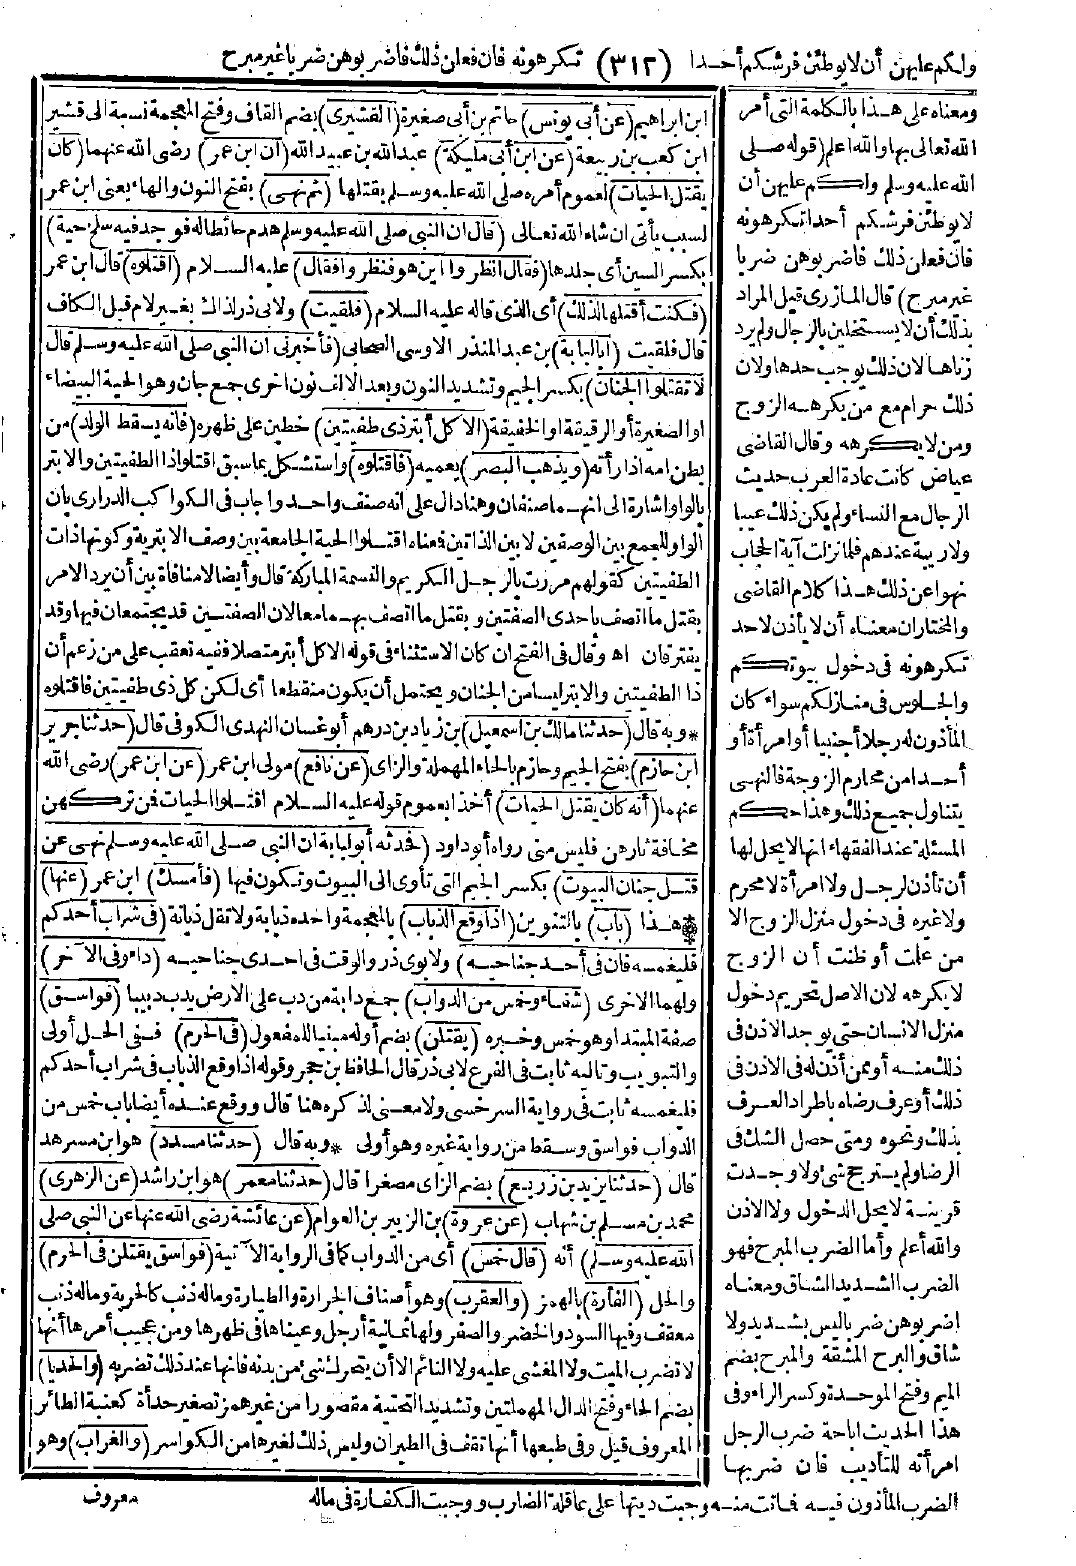 ولكم عليهن أن لا يوطئن فرشكم أحدا (٣١٢) تكرهونه فان فعلن ذلك فاضربوهن ضربا غير مبرح
ومعناه على هذا بالكلمة التى أمر
الله تعالى بها والله اعلم (قوله صلى
الله عليه وسلم ولكم عليهن أن
لا يوطئن فرشكم أحدا تكرهونه
فان فعلن ذلك فاضربوهن ضربا
غير مبرح) قال المازرى قيل المراد
بذلك أن لا يستخلين بالرجال ولم يرد
زناها لان ذلك يوجب حدها ولان
ذلك حرام مع من يكرهه الزوج
ومن لا يكرهه وقال القاضى
عياض كانت عادة العرب حديث
الرجال مع النساء ولم يكن ذلك عيبا
ولا ريبة عندهم فلما نزلت آية الحجاب
نهوا عن ذلك هذا كلام القاضى
والمختار ان معناه أن لا يأذن لاحد
تكرهونه فى دخول بيوتكم
والجلوس فى منازلكم سواء كان
المأذون له رجلا أجنبيا أو امرأة أو
أحدا من محارم الزوجة فالنهى
يتناول جميع ذلك وهذا حكم
المسئلة عند الفقهاء انها لا يحل لها
أن تأذن لرجل ولا امرأة لا محرم
ولا غيره فى دخول منزل الزوج الا
من علمت أو ظنت أن الزوج
لا يكرهه لان الاصل تحريم دخول
منزل الانسان حتى يوجد الاذن فى
ذلك منه أو ممن أذن له فى الاذن فى
ذلك أو عرف رضاه باطراد العرف
بذلك ونحوه ومتى حصل الشك فى
الرضا ولم يترجح شئ ولا وجدت
قرينة لا يحل الدخول ولا الاذن
والله أعلم وأما الضرب المبرح فهو
الضرب الشديد الشاق ومعناه
اضربوهن ضربا ليس بشديد ولا
شاق والبرح المشقة والمبرح بضم
الميم وفتح الموحدة وكسر الراء وفى
هذا الحديث اباحة ضرب الرجل
امرأته للتأديب فان ضربها
الضرب المأذون فيه فماتت منه وجبت ديتها على عاقلة الضارب ووجبت الكفارة فى ماله
ابن ابراهيم (عن أبى يونس) حاتم بن أبى صغيرة (القشيرى) بضم القاف وفتح المعجمة نسبة الى قشير
ابن كعب بن ربيعة (عن ابن أبى مليكة) عبد الله بن عبيد الله (ان ابن عمر) رضى الله عنهما (كان
يقتل الحيات) لعموم أمره صلى الله عليه وسلم بقتلها (ثم نهى) بفتح النون والهاء يعنى ابن عمر
لسبب يأتى ان شاء الله تعالى (قال ان النبى صلى الله عليه وسلم هدم حائطا له فوجد فيه سلخ حية)
بكسر السين أى جلدها (فقال انظروا اين هو فنظروا فقال) عليه السلام (اقتلوه) قال ابن عمر
(فكنت أقتلها لذلك) أى الذى قاله عليه السلام (فلقيت) ولابى ذر لذاك بغير لام قبل الكاف
قال فلقيت (أبا لبابة) بن عبد المنذر الاوسى الصحابى (فأخبرنى ان النبى صلى الله عليه وسلم قال
لا تقتلوا الجنان) بكسر الجيم وتشديد النون وبعد الالف نون اخرى جمع جان وهو الحية البيضاء
او الصغيرة أو الرقيقة او الخفيفة (الا كل أبتر ذى طفيتين) خطين على ظهره (فانه يسقط الولد) من
بطن امه اذا رأته (ويذهب البصر) يعميه (فاقتلوه) واستشكل بما سبق اقتلوا ذا الطفيتين والابتر
بالواو اشارة الى انهما صنفان وهنا دال على انه صنف واحد واجاب فى الكواكب الدرارى بان
الواو للجمع بين الوصفين لا بين الذاتين فمعناه اقتلوا الحية الجامعة بين وصف الابترية وكونها ذات
الطفيتين كقولهم مررت بالرجل الكريم والنسمة المباركة قال وأيضا لا منافاة بين أن يرد الامر
بقتل ما اتصف باحدى الصفتين وبقتل ما اتصف بهما معا لان الصفتين قد يجتمعان فيها وقد
يفترقان اه وقال فى الفتح ان كان الاستثناء فى قوله الا كل أبتر متصلا ففيه تعقب على من زعم أن
ذا الطفيتين والابتر ليسا من الجنان ويحتمل أن يكون منقطعا أى لكن كل ذى طفيتين فاقتلوه
*وبه قال (حدثنا مالك بن اسمعيل) بن زياد بن درهم أبو غسان النهدى الكوفى قال (حدثنا جرير
ابن حازم) بفتح الجيم وحازم بالحاء المهملة والزاى (عن نافع) مولى ابن عمر (عن ابن عمر) رضى الله
عنهما (أنه كان يقتل الحيات) أخذا بعموم قوله عليه السلام اقتلوا الحيات فمن تركهن
مخافة ثارهن فليس منى رواه أبو داود (فحدثه أبو لبابة ان النبى صلى الله عليه وسلم نهى عن
قتل جنان البيوت) بكسر الجيم التى تأوى الى البيوت وتكون فيها (فأمسك) ابن عمر (عنها)
هذا (باب) بالتنوين (اذا وقع الذباب) بالمعجمة واحده ذبابة ولا تقل ذبانة (فى شراب أحدكم
فليغمسه فان فى أحد جناحيه) ولابوى ذر والوقت فى احدى جناحيه (داء وفى الآخر)
ولهما الاخرى (شفاء وخمس من الدواب) جمع دابة من دب على الارض يدب دبيبا (فواسق)
صفة المبتدا وهو خمس وخبره (يقتلن) بضم أوله مبنيا للمفعول (فى الحرم) ففى الحل أولى
والتبويب وتاليه ثابت فى الفرع لابى ذر قال الحافظ بن حجر وقوله اذا وقع الذباب فى شراب أحدكم
فليغمسه ثابت فى رواية السرخسى ولا معنى لذكره هنا قال ووقع عنده أيضا باب خمس من
الدواب فواسق وسقط من رواية غيره وهو أولى *وبه قال (حدثنا مسدد) هو ابن مسرهد
قال (حدثنا يزيد بن زريع) بضم الزاى مصغرا قال (حدثنا معمر) هو ابن راشد (عن الزهرى)
محمد بن مسلم بن شهاب (عن عروة) بن الزبير بن العوام (عن عائشة رضى الله عنها عن النبى صلى
الله عليه وسلم) أنه (قال خمس) أى من الدواب كما فى الرواية الآتية (فواسق يقتلن فى الحرم)
والحل (الفأرة) بالهمز (والعقرب) وهو أصناف الجرارة والطيارة وماله ذنب كالحربة وماله ذنب
معقف وفيها السود والخضر والصفر ولها ثمانية أرجل وعيناها فى ظهرها ومن عجيب أمرها أنها
لا تضرب الميت ولا المغشى عليه ولا النائم الا أن يتحرك شئ من بدنه فانها عند ذلك تضربه (والحديا)
بضم الحاء وفتح الدال المهملتين وتشديد التحتية مقصورا من غير همز تصغير حدأة كعنبة الطائر
المعروف قيل وفى طبعها أنها تقف فى الطيران وليس ذلك لغيرها من الكواسر (والغراب) وهو
معروف